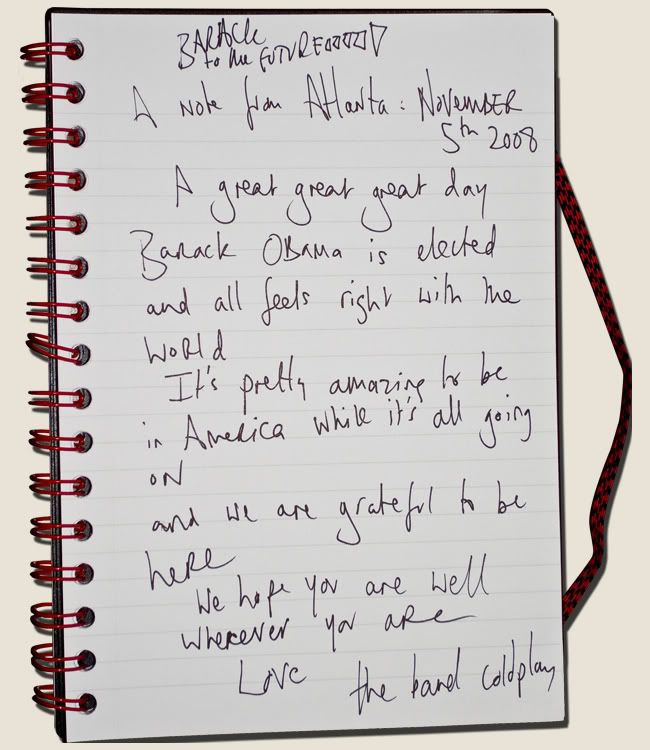 BARACK
to the FUTURE
A note from Atlanta: NOVEMBER
5th 2008
A great great great day
Barack OBAMA is elected
and all feels right with the
WORLD
It's pretty amazing to be
in America while it's all going
ON
and we are grateful to be
here
We hope you are well
wherever you are
Love the band coldplay